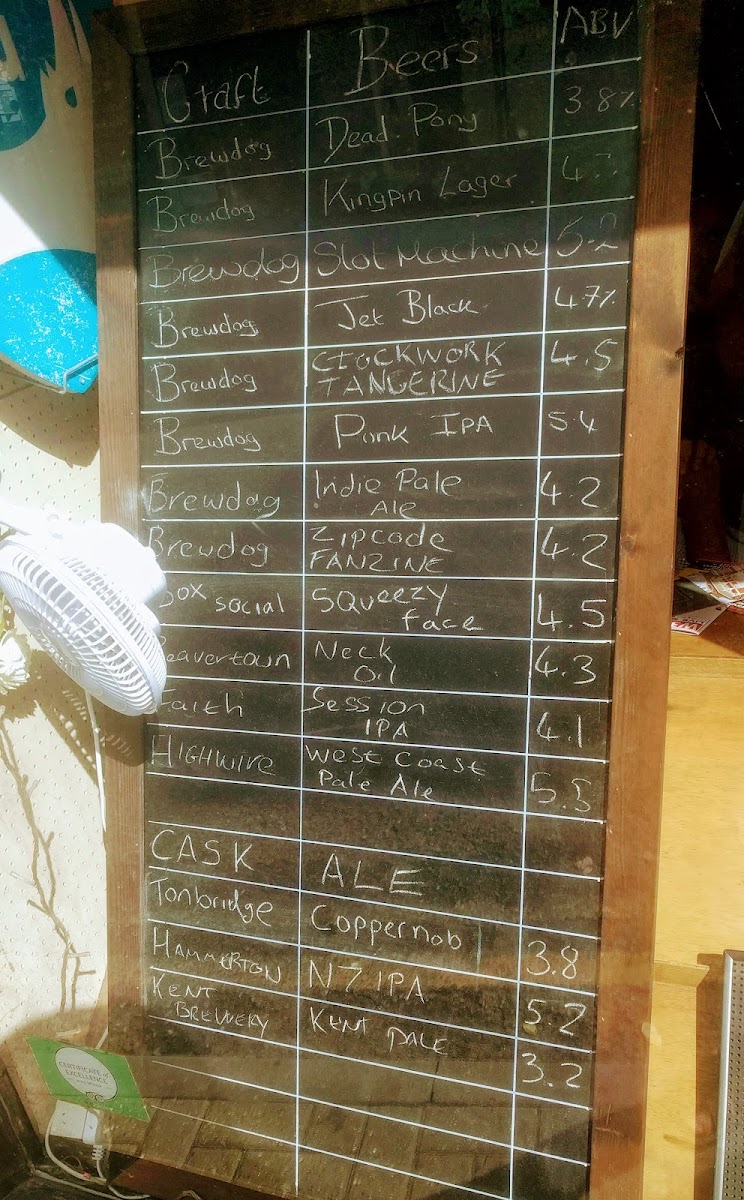 Craft Beers ABV
Brewdog Dead Pony 3.8%
Brewdog Kingpin Lager
Brewdog Slot Machine 5.2
Brewdog Jet Black 4.7%
Brewdog CLOCKWORK 4.5
TANGERINE
Brewdog Punk IPA 5.4
Brewdog Indie Pale 4.2
Ale
Brewdog Zipcode 4.2
FANZINE
social Squeezy 4.5
face
Beavertown Neck 4.3
Oil
Faith Session 4.1
IPA
HIGHWIRE West Coast 5.5
Pale Ale
CASK ALE
Tonbridge Coppernob 3.8
HAMMERTON N7 IPA 5.2
KENT Kent PALE 3.2
BREWERY
CERTIFICATE of
EXCELLENCE